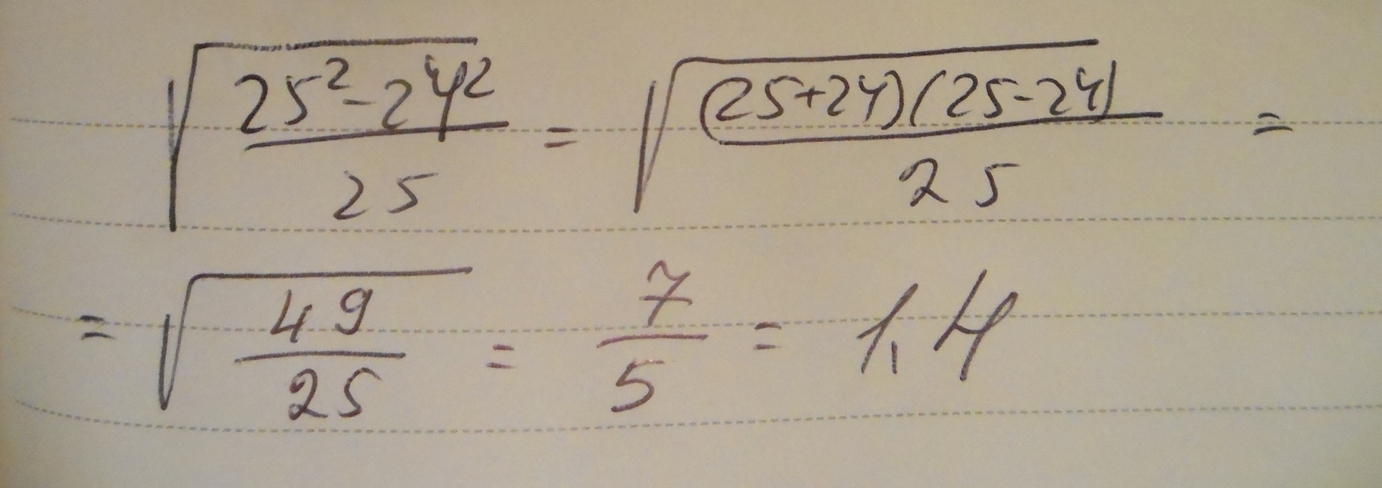 √((25²-24²)/25) = √(((25+24)(25-24))/25) =
= √(49/25) = 7/5 = 1,4